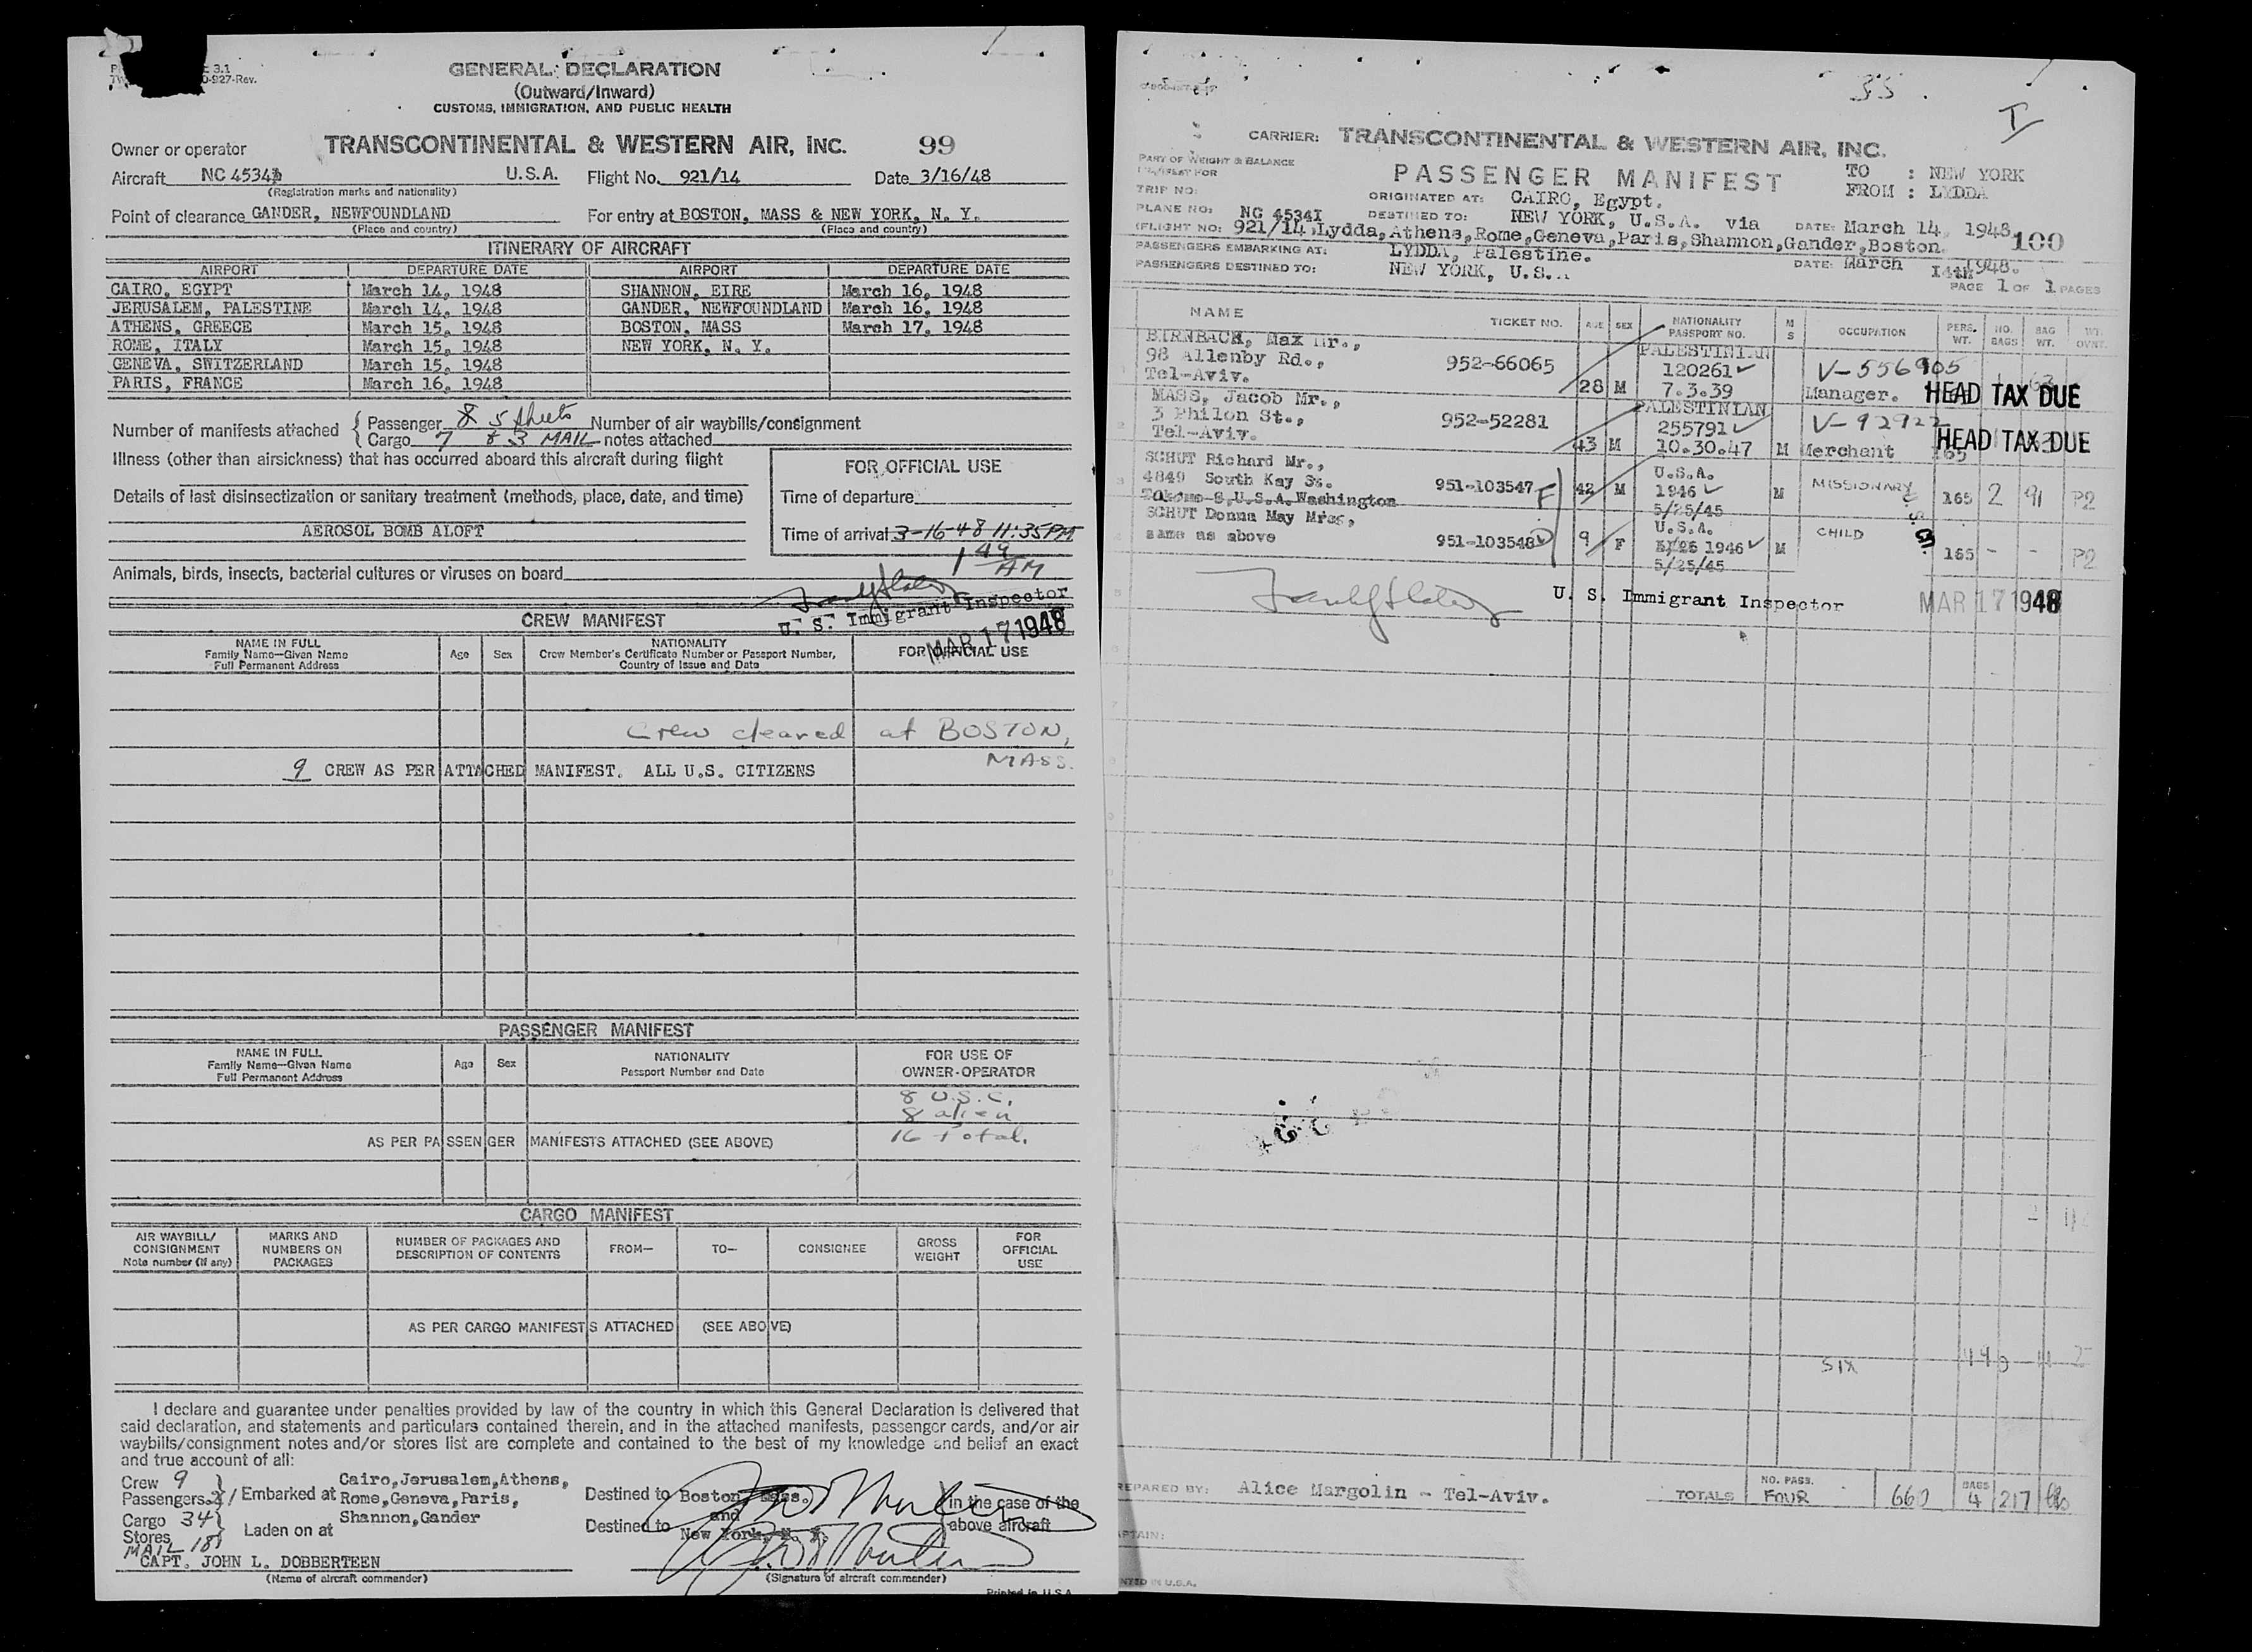 GENERAL DECLARATION
(Outward/Inward)
CUSTOMS, IMMIGRATION, AND PUBLIC HEALTH
3.1
-927-Rev.
Owner or operator TRANSCONTINENTAL & WESTERN AIR, INC. 99
Aircraft NC 4534 U.S.A. Flight No. 921/14 Date 3/16/48
(Registration marks and nationality)
Point of clearance GANDER, NEWFOUNDLAND For entry at BOSTON, MASS & NEW YORK, N. Y.
(Place and country) (Place and country)
ITINERARY OF AIRCRAFT
AIRPORT DEPARTURE DATE AIRPORT DEPARTURE DATE
CAIRO, EGYPT March 14, 1948 SHANNON, EIRE March 16, 1948
JERUSALEM, PALESTINE March 14, 1948 GANDER, NEWFOUNDLAND March 16, 1948
ATHENS, GREECE March 15, 1948 BOSTON, MASS March 17, 1948
ROME, ITALY March 15, 1948 NEW YORK, N. Y.
GENEVA, SWITZERLAND March 15, 1948
PARIS, FRANCE March 16, 1948
Number of manifests attached { Passenger 8 5 sheets Number of air waybills/consignment
Cargo 7 & 3 MAIL notes attached
Illness (other than airsickness) that has occurred aboard this aircraft during flight
FOR OFFICIAL USE
Details of last disinsectization or sanitary treatment (methods, place, date, and time)
Time of departure
AEROSOL BOMB ALOFT
Time of arrival 3-16-48 11:35PM
1 49 AM
Animals, birds, insects, bacterial cultures or viruses on board
U. S. Immigrant Inspector
MAR 17 1948
CREW MANIFEST
NAME IN FULL
Family Name—Given Name
Full Permanent Address
Age Sex
NATIONALITY
Crew Member's Certificate Number or Passport Number,
Country of Issue and Date
FOR OFFICIAL USE
Crew cleared at BOSTON,
MASS.
9 CREW AS PER ATTACHED MANIFEST. ALL U.S. CITIZENS
PASSENGER MANIFEST
NAME IN FULL
Family Name—Given Name
Full Permanent Address
Age Sex
NATIONALITY
Passport Number and Date
FOR USE OF
OWNER-OPERATOR
8 U.S.C.
8 alien
16 Total.
AS PER PASSENGER MANIFESTS ATTACHED (SEE ABOVE)
CARGO MANIFEST
AIR WAYBILL/
CONSIGNMENT
Note number (if any)
MARKS AND
NUMBERS ON
PACKAGES
NUMBER OF PACKAGES AND
DESCRIPTION OF CONTENTS
FROM— TO— CONSIGNEE
GROSS
WEIGHT
FOR
OFFICIAL
USE
AS PER CARGO MANIFESTS ATTACHED (SEE ABOVE)
I declare and guarantee under penalties provided by law of the country in which this General Declaration is delivered that
said declaration, and statements and particulars contained therein, and in the attached manifests, passenger cards, and/or air
waybills/consignment notes and/or stores list are complete and contained to the best of my knowledge and belief an exact
and true account of all:
Crew 9
Passengers
Cargo 34
Stores
MAIL 18
Embarked at Cairo,Jerusalem,Athens,
Rome,Geneva,Paris,
Shannon,Gander
Laden on at
Destined to Boston, Mass.
and
Destined to New York, N. Y.
in the case of the
above aircraft
CAPT. JOHN L. DOBBERTEEN
(Name of aircraft commander) (Signature of aircraft commander)
Printed in U.S.A.
35
I
CARRIER: TRANSCONTINENTAL & WESTERN AIR, INC.
PART OF WEIGHT & BALANCE
MANIFEST FOR
PASSENGER MANIFEST
TO : NEW YORK
FROM : LYDDA
TRIP NO:
ORIGINATED AT: CAIRO, Egypt.
PLANE NO: NC 4534I DESTINED TO: NEW YORK, U.S.A. via DATE: March 14, 1948
(FLIGHT NO: 921/14 Lydda,Athens,Rome,Geneva,Paris,Shannon,Gander,Boston 100
PASSENGERS EMBARKING AT: LYDDA, Palestine.
DATE: March 14th 1948.
PASSENGERS DESTINED TO: NEW YORK, U.S.A
PAGE 1 OF 1 PAGES
NAME TICKET NO. AGE SEX NATIONALITY PASSPORT NO. M S OCCUPATION PERS. WT. NO. BAGS BAG WT. WT. OVNT.
BIRNBACK, Max Mr.,
98 Allenby Rd.,
Tel-Aviv.
952-66065 28 M PALESTINIAN
120261
7.3.39
V-556905
Manager. HEAD TAX DUE
MASS, Jacob Mr.,
3 Philon St.,
Tel-Aviv.
952-52281 43 M PALESTINIAN
255791
10.30.47
M Merchant V-92922 165 HEAD TAX DUE
SCHUT Richard Mr.,
4849 South Kay St.
Tacoma-8,U.S.A.Washington
951-103547 42 M U.S.A.
1946
5/25/45
M MISSIONARY 165 2 91 P2
SCHUT Donna May Mrss,
same as above
951-103548 9 F U.S.A.
1946
5/25/45
M CHILD 165 - - P2
U. S. Immigrant Inspector
MAR 17 1948
SIX
PREPARED BY: Alice Margolin - Tel-Aviv.
TOTALS NO. PASS. FOUR 660 BAGS 4 217
CAPTAIN:
PRINTED IN U.S.A.